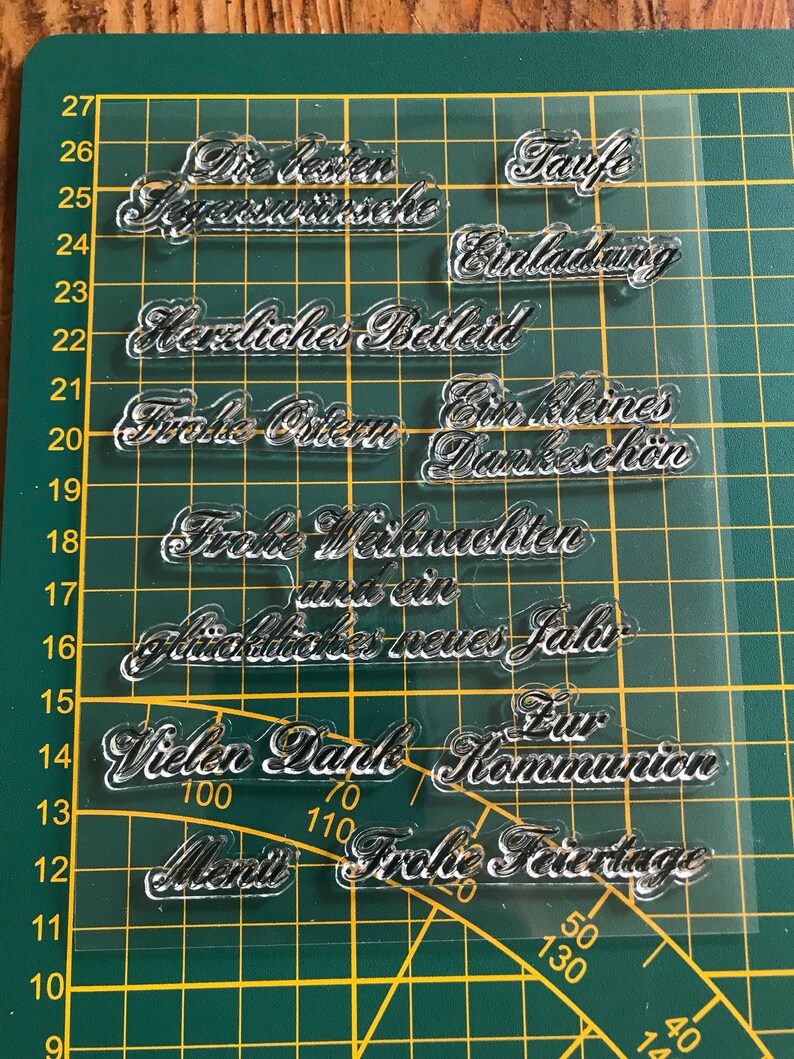 27
26
Die besten
Taufe
25
Segenswünsche
24
Einladung
23
22
Herzliches Beileid
21
Ein kleines
20
Frohe Ostern
Dankeschön
19
18
Frohe Weihnachten
17
und ein
16
glückliches neues Jahr
15
Zur
14
Vielen Dank
Kommunion
100
70
13
110
12
Menü
Frohe Feiertage
11
50
130
10
40
9